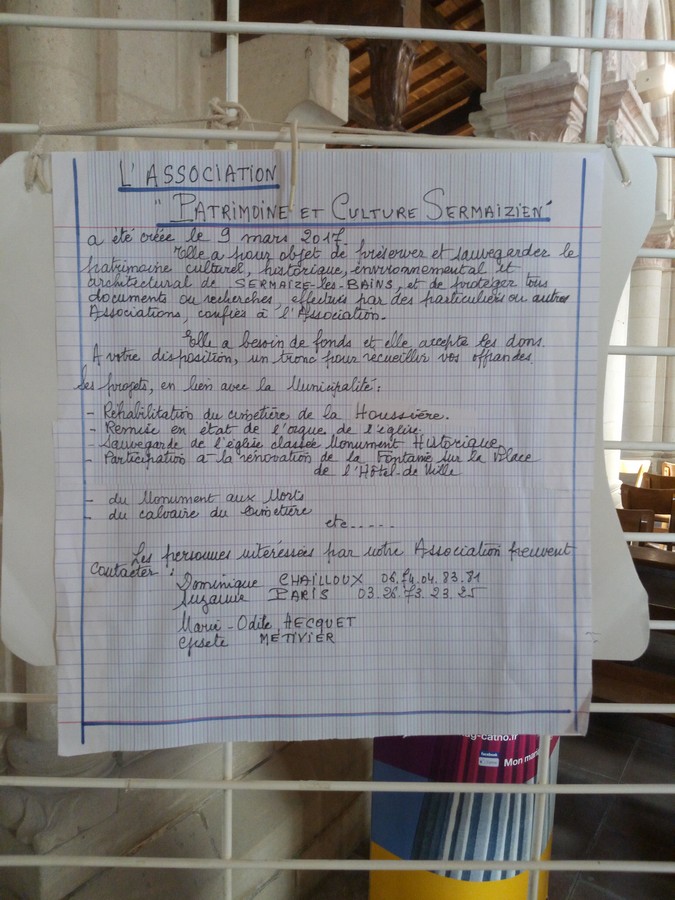 L'ASSOCIATION
"PATRIMOINE ET CULTURE SERMAIZIEN"
a été créée le 9 mars 2017.
Elle a pour objet de préserver et sauvegarder le
patrimoine culturel, historique, environnemental et
architectural de SERMAIZE-les-BAINS, et de protéger tous
documents ou recherches, effectués par des particuliers ou autres
Associations, confiés à l'Association.
Elle a besoin de fonds et elle accepte les dons.
A votre disposition, un tronc pour recueillir vos offrandes.
Les projets, en lien avec la Municipalité :
- Réhabilitation du cimetière de la Houssière.
- Remise en état de l'orgue de l'église.
- Sauvegarde de l'église classée Monument Historique
- Participation à la rénovation de la Fontaine sur la Place
de l'Hôtel-de Ville
- du Monument aux Morts
- du calvaire du Cimetière
etc.....
Les personnes intéressées par notre Association peuvent
contacter :
Dominique CHAILLOUX 06.74.04.83.81
Suzanne PARIS 03.26.73.23.25
Marie-Odile HECQUET
MÉTIVIER
g-catho.fr
facebook
Mon